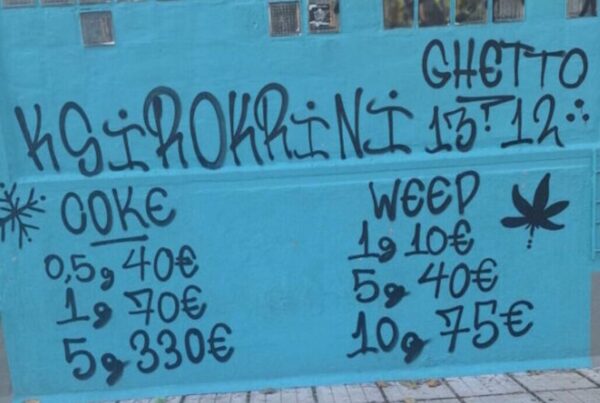 GHETTO
KSiROKRiNi 13T12
COKE
0,5g 40€
1g 70€
5g 330€
WEED
1g 10€
5g 40€
10g 75€